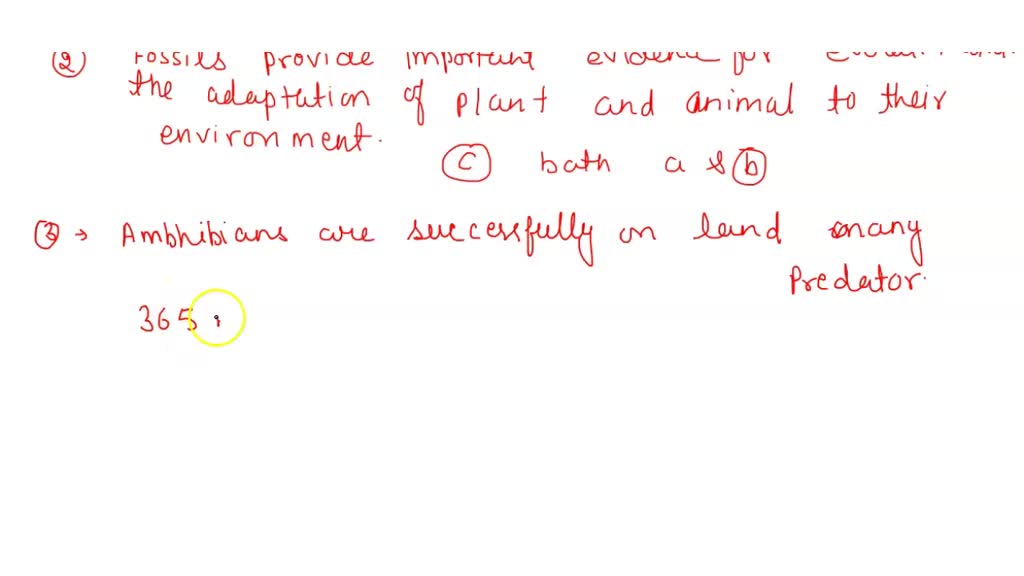 ② Fossils provide important evidence for
the adaptation of plant and animal to their
environment.
Ⓒ bath a & ⓑ
③ → Ambhibians are successfully on land many
Predator.
365